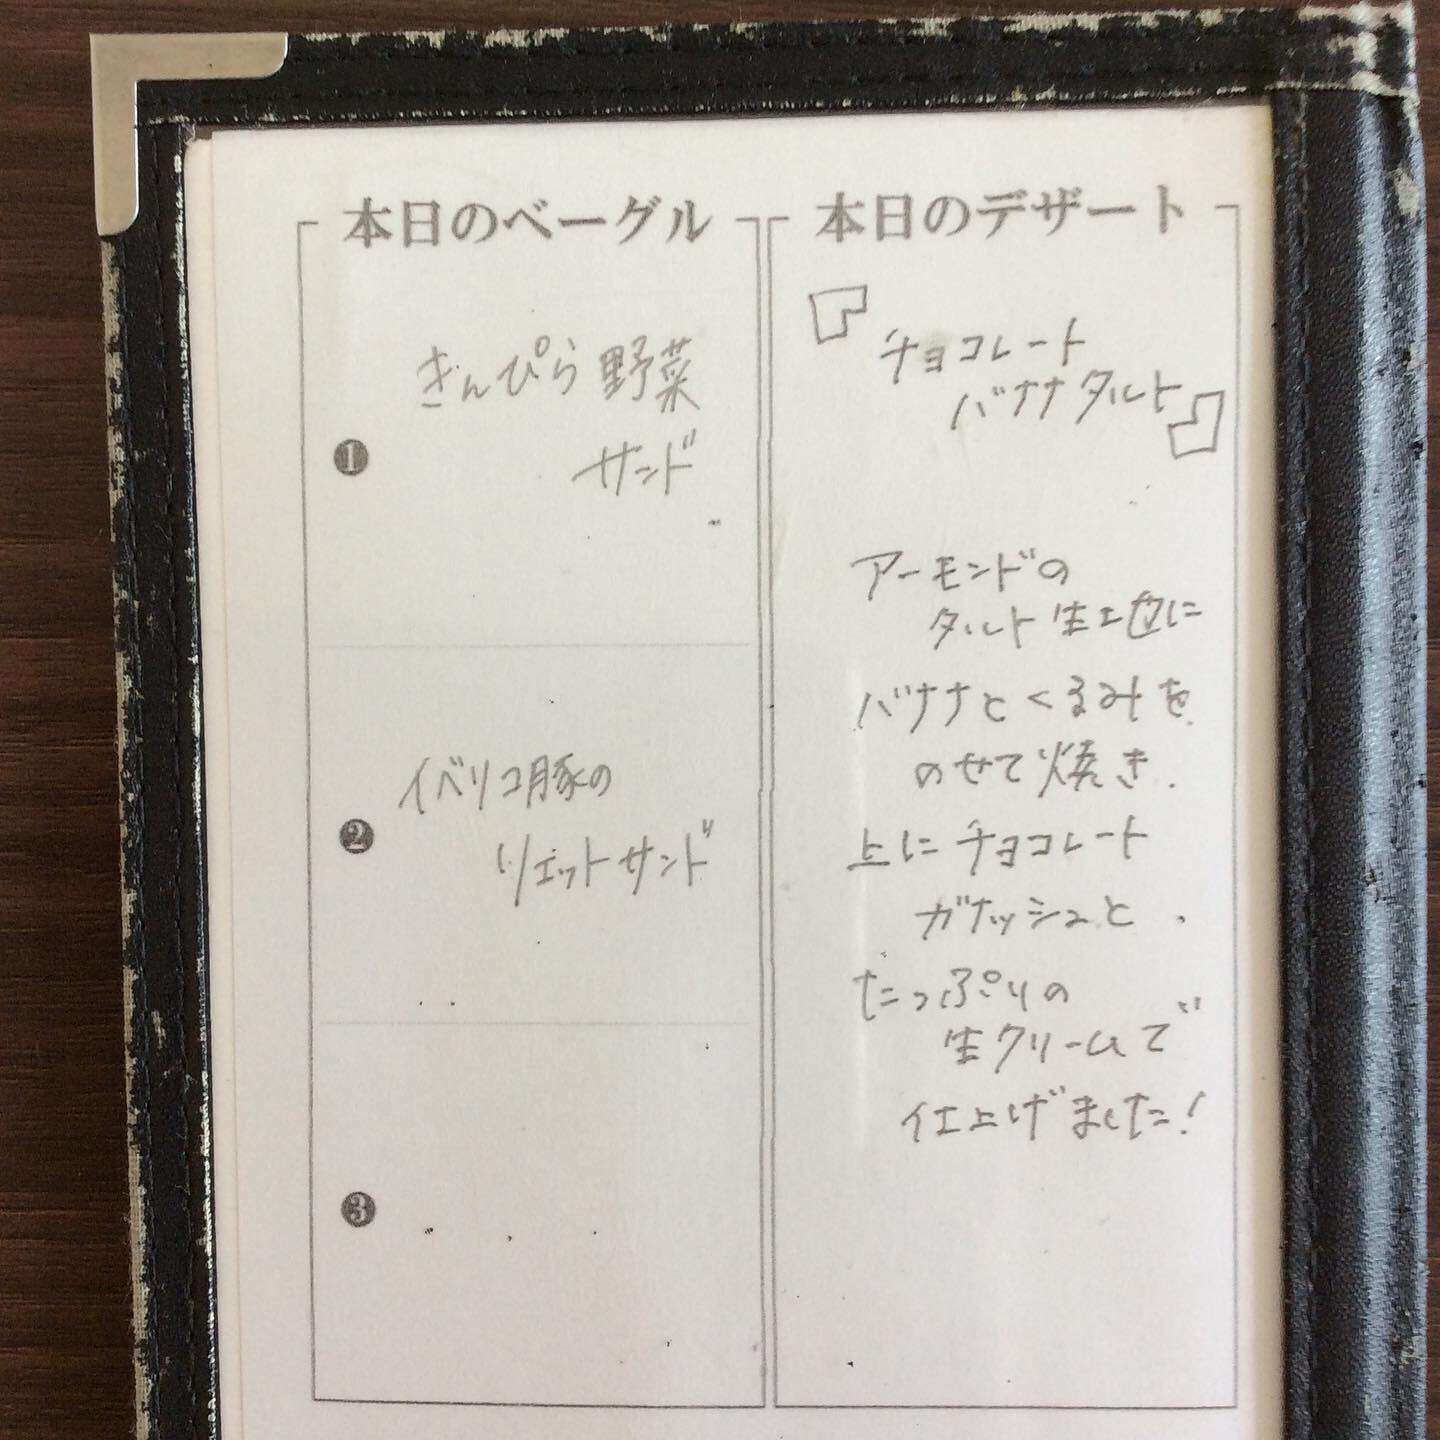 本日のベーグル
❶
きんぴら野菜
サンド
❷
イベリコ豚の
リエットサンド
❸
本日のデザート
『チョコレート
バナナタルト』
アーモンドの
タルト生地に
バナナとくるみを
のせて焼き、
上にチョコレート
ガナッシュと、
たっぷりの
生クリームで
仕上げました!